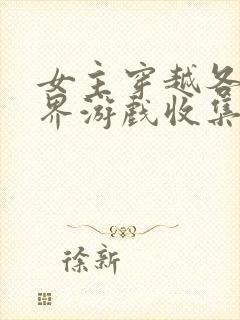 女主穿越各
界游戏收集
徐新